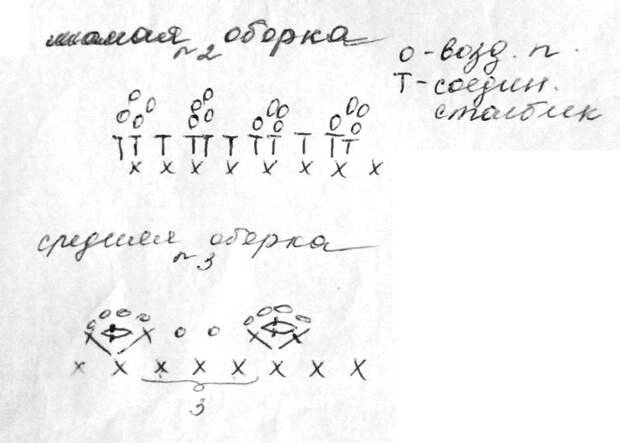 малая оборка
№2
о - возд. п.
Т - соедин.
столбик
средняя оборка
№3
3